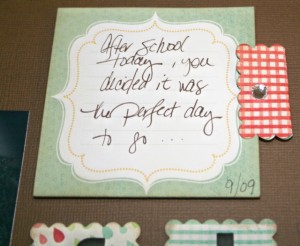 After School
today, you
decided it was
the perfect day
to go ...
9/09